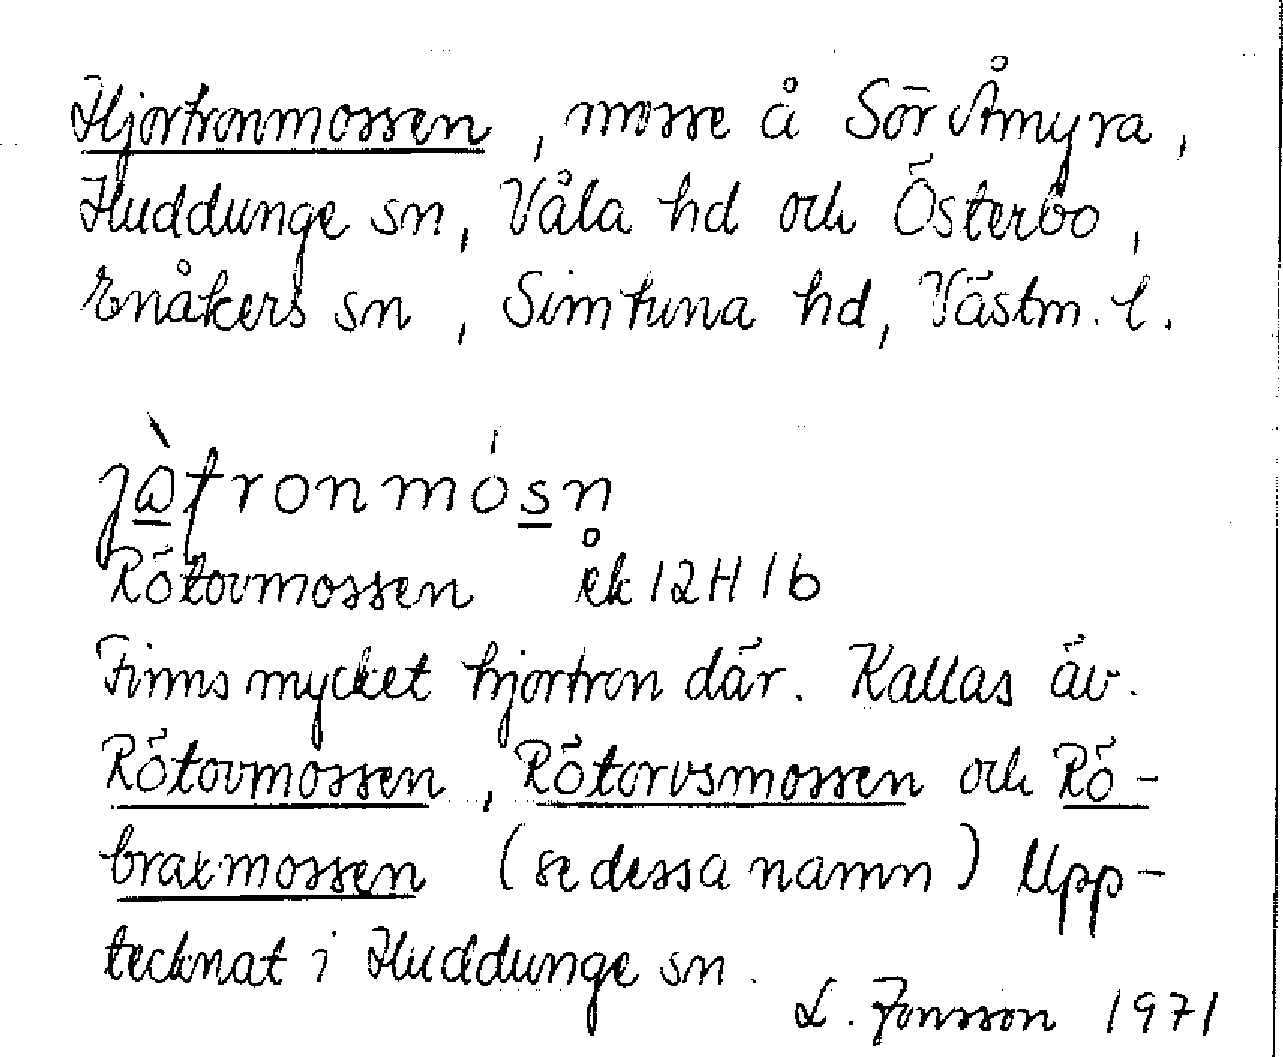 Hjortronmossen, mosse å Sör Åmyra,
Huddunge sn, Våla hd och Österbo,
Enåkers sn, Simtuna hd, Västm. l.
jàtronmósn
Rötovmossen ek 12H 1b
Finns mycket hjortron där. Kallas äv.
Rötovmossen, Rötorvsmossen och Rö-
braxmossen (se dessa namn) Upp-
tecknat i Huddunge sn.
L. Jonsson 1971